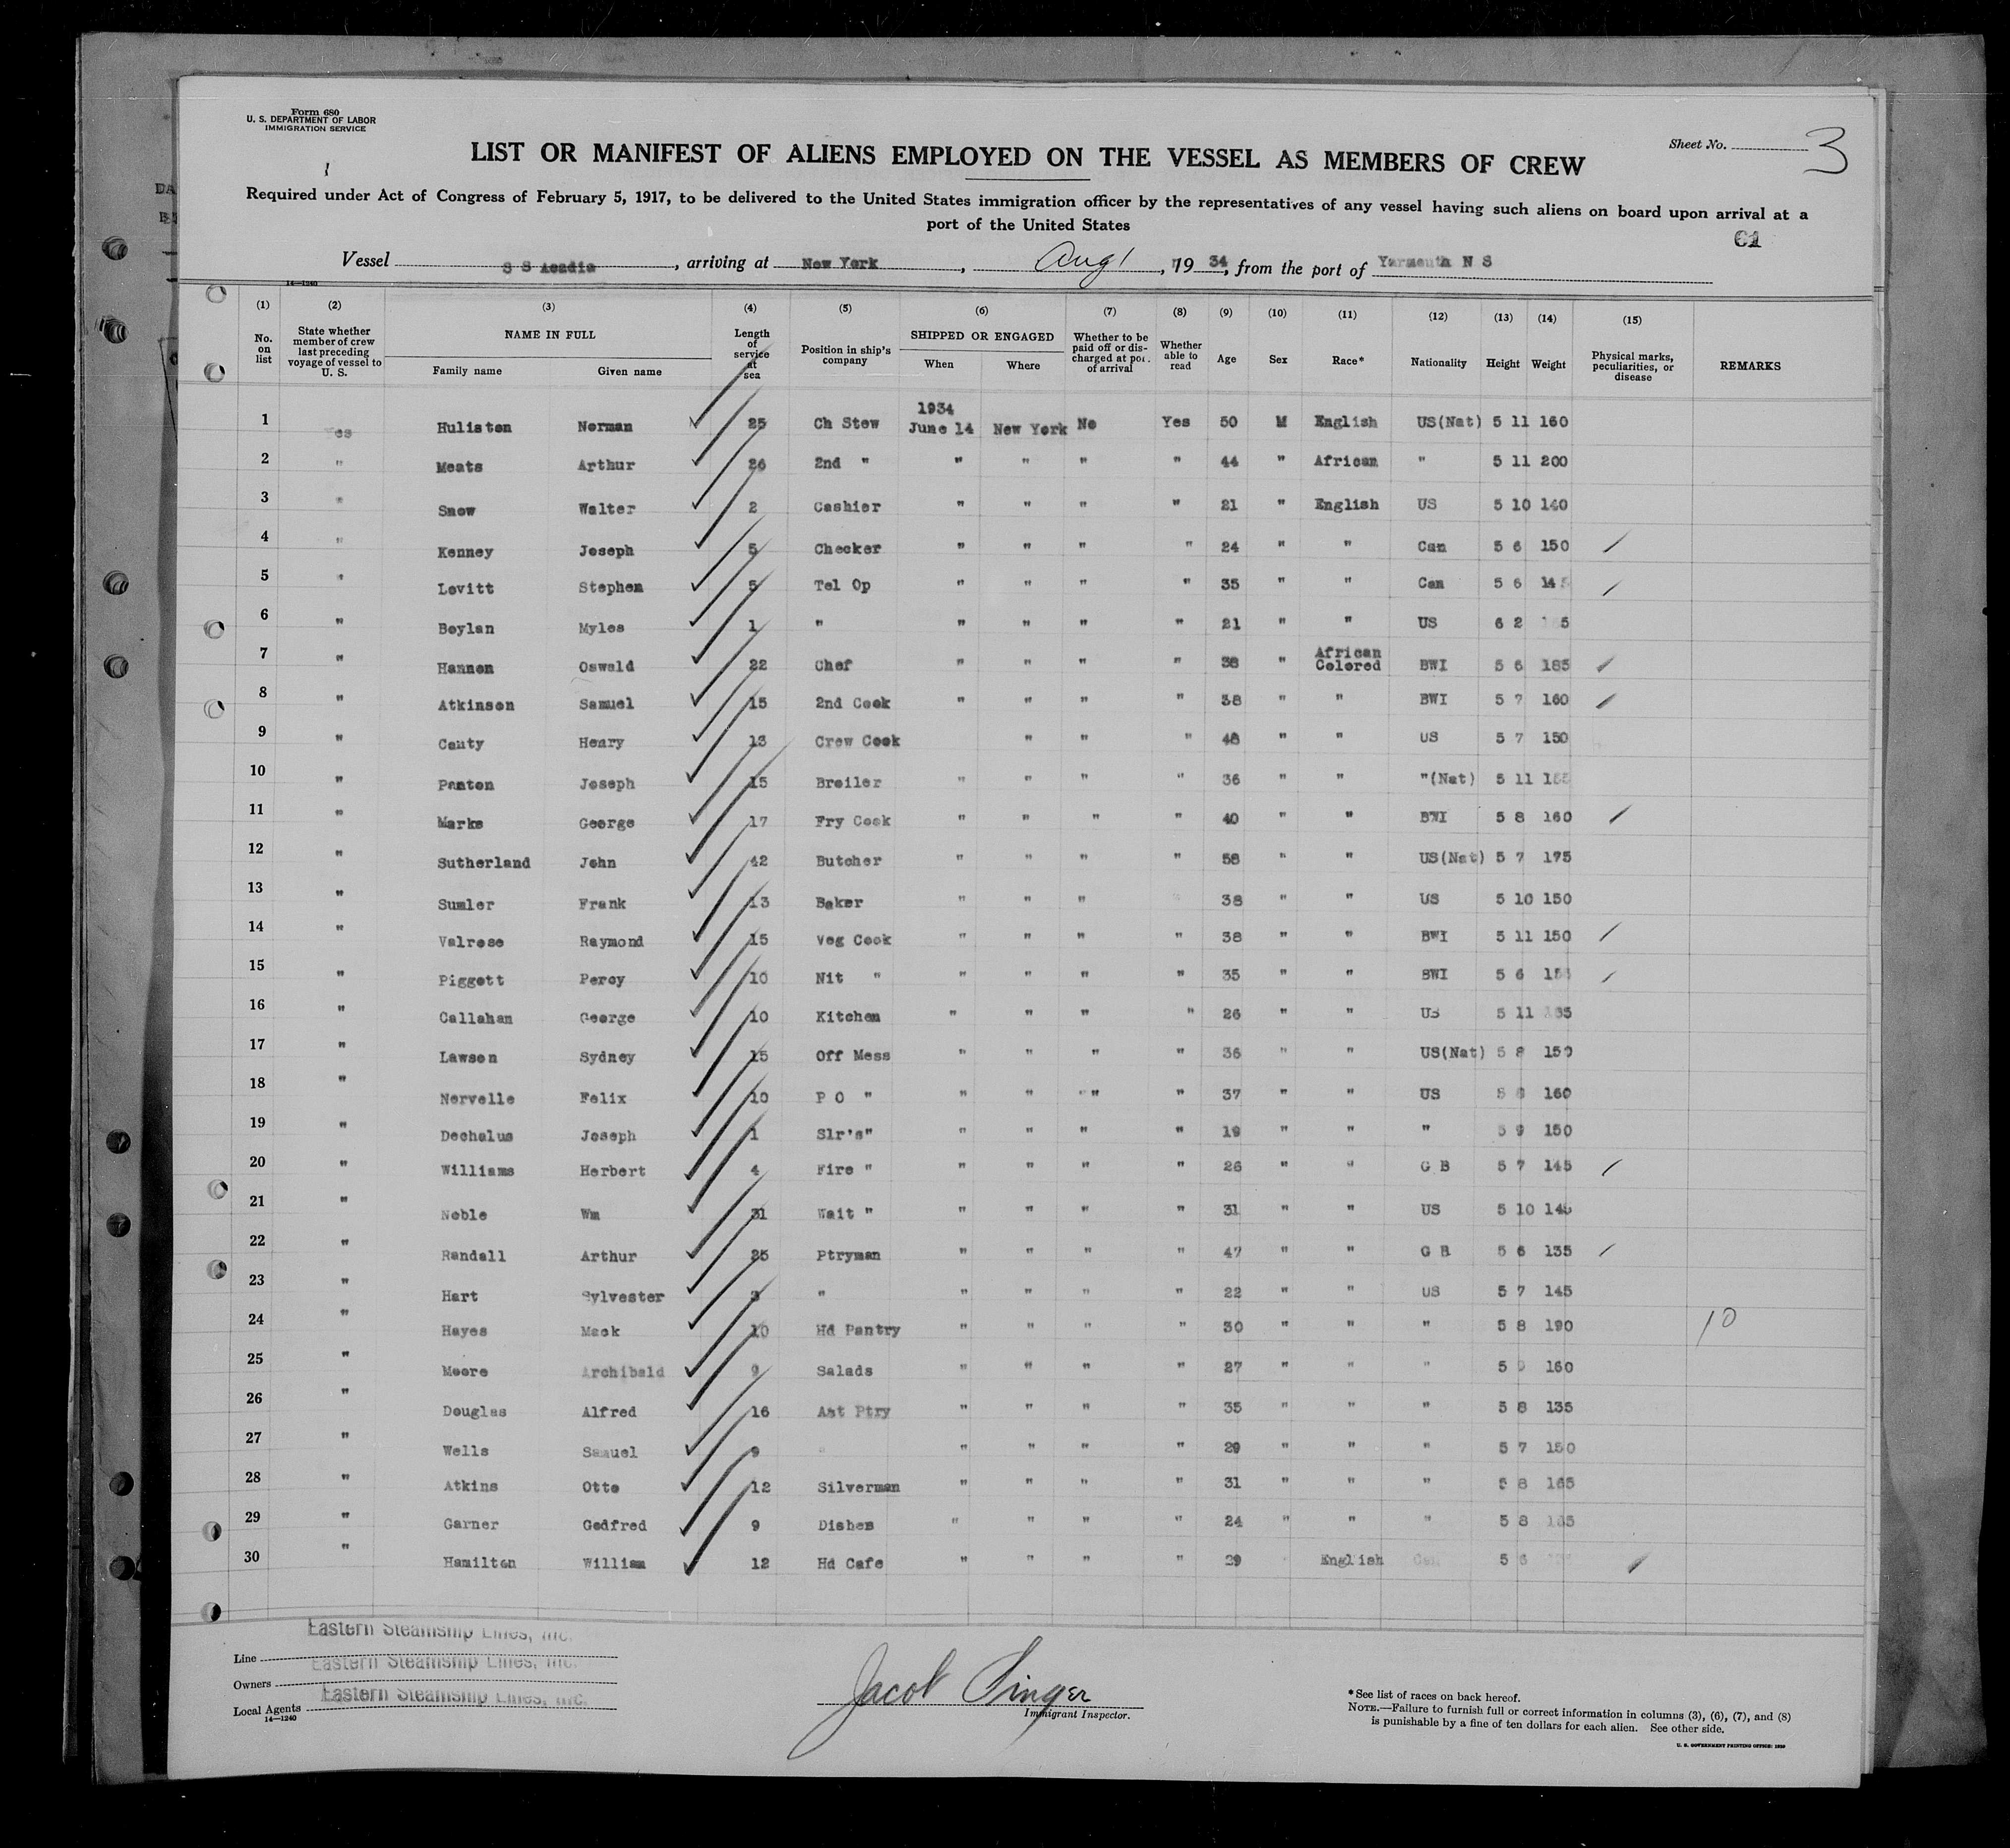 Form 680
U. S. DEPARTMENT OF LABOR
IMMIGRATION SERVICE
Sheet No. 3
LIST OR MANIFEST OF ALIENS EMPLOYED ON THE VESSEL AS MEMBERS OF CREW
Required under Act of Congress of February 5, 1917, to be delivered to the United States immigration officer by the representatives of any vessel having such aliens on board upon arrival at a
port of the United States
Vessel S S Acadia, arriving at New York, Aug 1, 1934, from the port of Yarmouth N S
14—1240
(1) (2) (3) (4) (5) (6) (7) (8) (9) (10) (11) (12) (13) (14) (15)
No. on list State whether member of crew last preceding voyage of vessel to U. S. NAME IN FULL Family name Given name Length of service at sea Position in ship's company SHIPPED OR ENGAGED When Where Whether to be paid off or discharged at port of arrival Whether able to read Age Sex Race* Nationality Height Weight Physical marks, peculiarities, or disease REMARKS
1934
1 Yes Huliston Norman 25 Ch Stew June 14 New York No Yes 50 M English US(Nat) 5 11 160
2 " Meats Arthur 26 2nd " " " " " 44 " African " 5 11 200
3 " Snow Walter 2 Cashier " " " " 21 " English US 5 10 140
4 " Kenney Joseph 5 Checker " " " " 24 " " Can 5 6 150
5 " Levitt Stephen 5 Tel Op " " " " 35 " " Can 5 6 145
6 " Boylan Myles 1 " " " " " 21 " " US 6 2
7 " Hannon Oswald 22 Chef " " " " 38 " African Colored BWI 5 6 185
8 " Atkinson Samuel 15 2nd Cook " " " " 38 " " BWI 5 7 160
9 " Canty Henry 13 Crew Cook " " " 48 " " US 5 7 150
10 " Panton Joseph 15 Broiler " " " " 36 " " "(Nat) 5 11
11 " Marks George 17 Fry Cook " " " " 40 " " BWI 5 8 160
12 " Sutherland John 42 Butcher " " " " 58 " " US(Nat) 5 7 175
13 " Sumler Frank 13 Baker " " " 38 " " US 5 10 150
14 " Valrose Raymond 15 Veg Cook " " " " 38 " " BWI 5 11 150
15 " Piggott Percy 10 Nit " " " " " 35 " " BWI 5 6
16 " Callahan George 10 Kitchen " " " " 26 " " US 5 11
17 " Lawson Sydney 15 Off Mess " " " " 36 " " US(Nat) 5 8 150
18 " Norvelle Felix 10 P O " " " " " 37 " " US 160
19 " Dechalus Joseph 1 Slr's" " " " " 19 " " " 5 9 150
20 " Williams Herbert 4 Fire " " " " " 26 " " G B 5 7 145
21 " Noble Wm 31 Wait " " " " " 31 " " US 5 10 145
22 " Randall Arthur 25 Ptryman " " " " 47 " " G B 5 6 135
23 " Hart Sylvester 3 " " " " " 22 " " US 5 7 145
24 " Hayes Mack 10 Hd Pantry " " " " 30 " " " 5 8 190 10
25 " Moore Archibald 9 Salads " " " " 27 " " " 5 160
26 " Douglas Alfred 16 Ast Ptry " " " " 35 " " " 5 8 135
27 " Wells Samuel 9 " " " " " 29 " " " 5 7 150
28 " Atkins Otto 12 Silverman " " " " 31 " " " 5 8 165
29 " Garner Godfred 9 Dishes " " " " 24 " " " 5 8
30 " Hamilton William 12 Hd Cafe " " " " 29 English 5 6
Line Eastern Steamship Lines, Inc.
Owners Eastern Steamship Lines, Inc.
Local Agents Eastern Steamship Lines, Inc.
14—1240
Jacob Singer
Immigrant Inspector.
*See list of races on back hereof.
NOTE.—Failure to furnish full or correct information in columns (3), (6), (7), and (8)
is punishable by a fine of ten dollars for each alien. See other side.